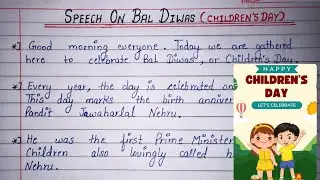 PAGE
SPEECH ON BAL DIWAS (CHILDREN'S DAY)
*] Good morning everyone. Today we are gathered
here to celebrate Bal Diwas, or Children's Day
*] Every year, the day is celebrated on
This day marks the birth anniver
Pandit Jawaharlal Nehru.
*] He was the first Prime Minister
Children also lovingly called h
Nehru.
HAPPY
CHILDREN'S
DAY
LET'S CELEBRATE